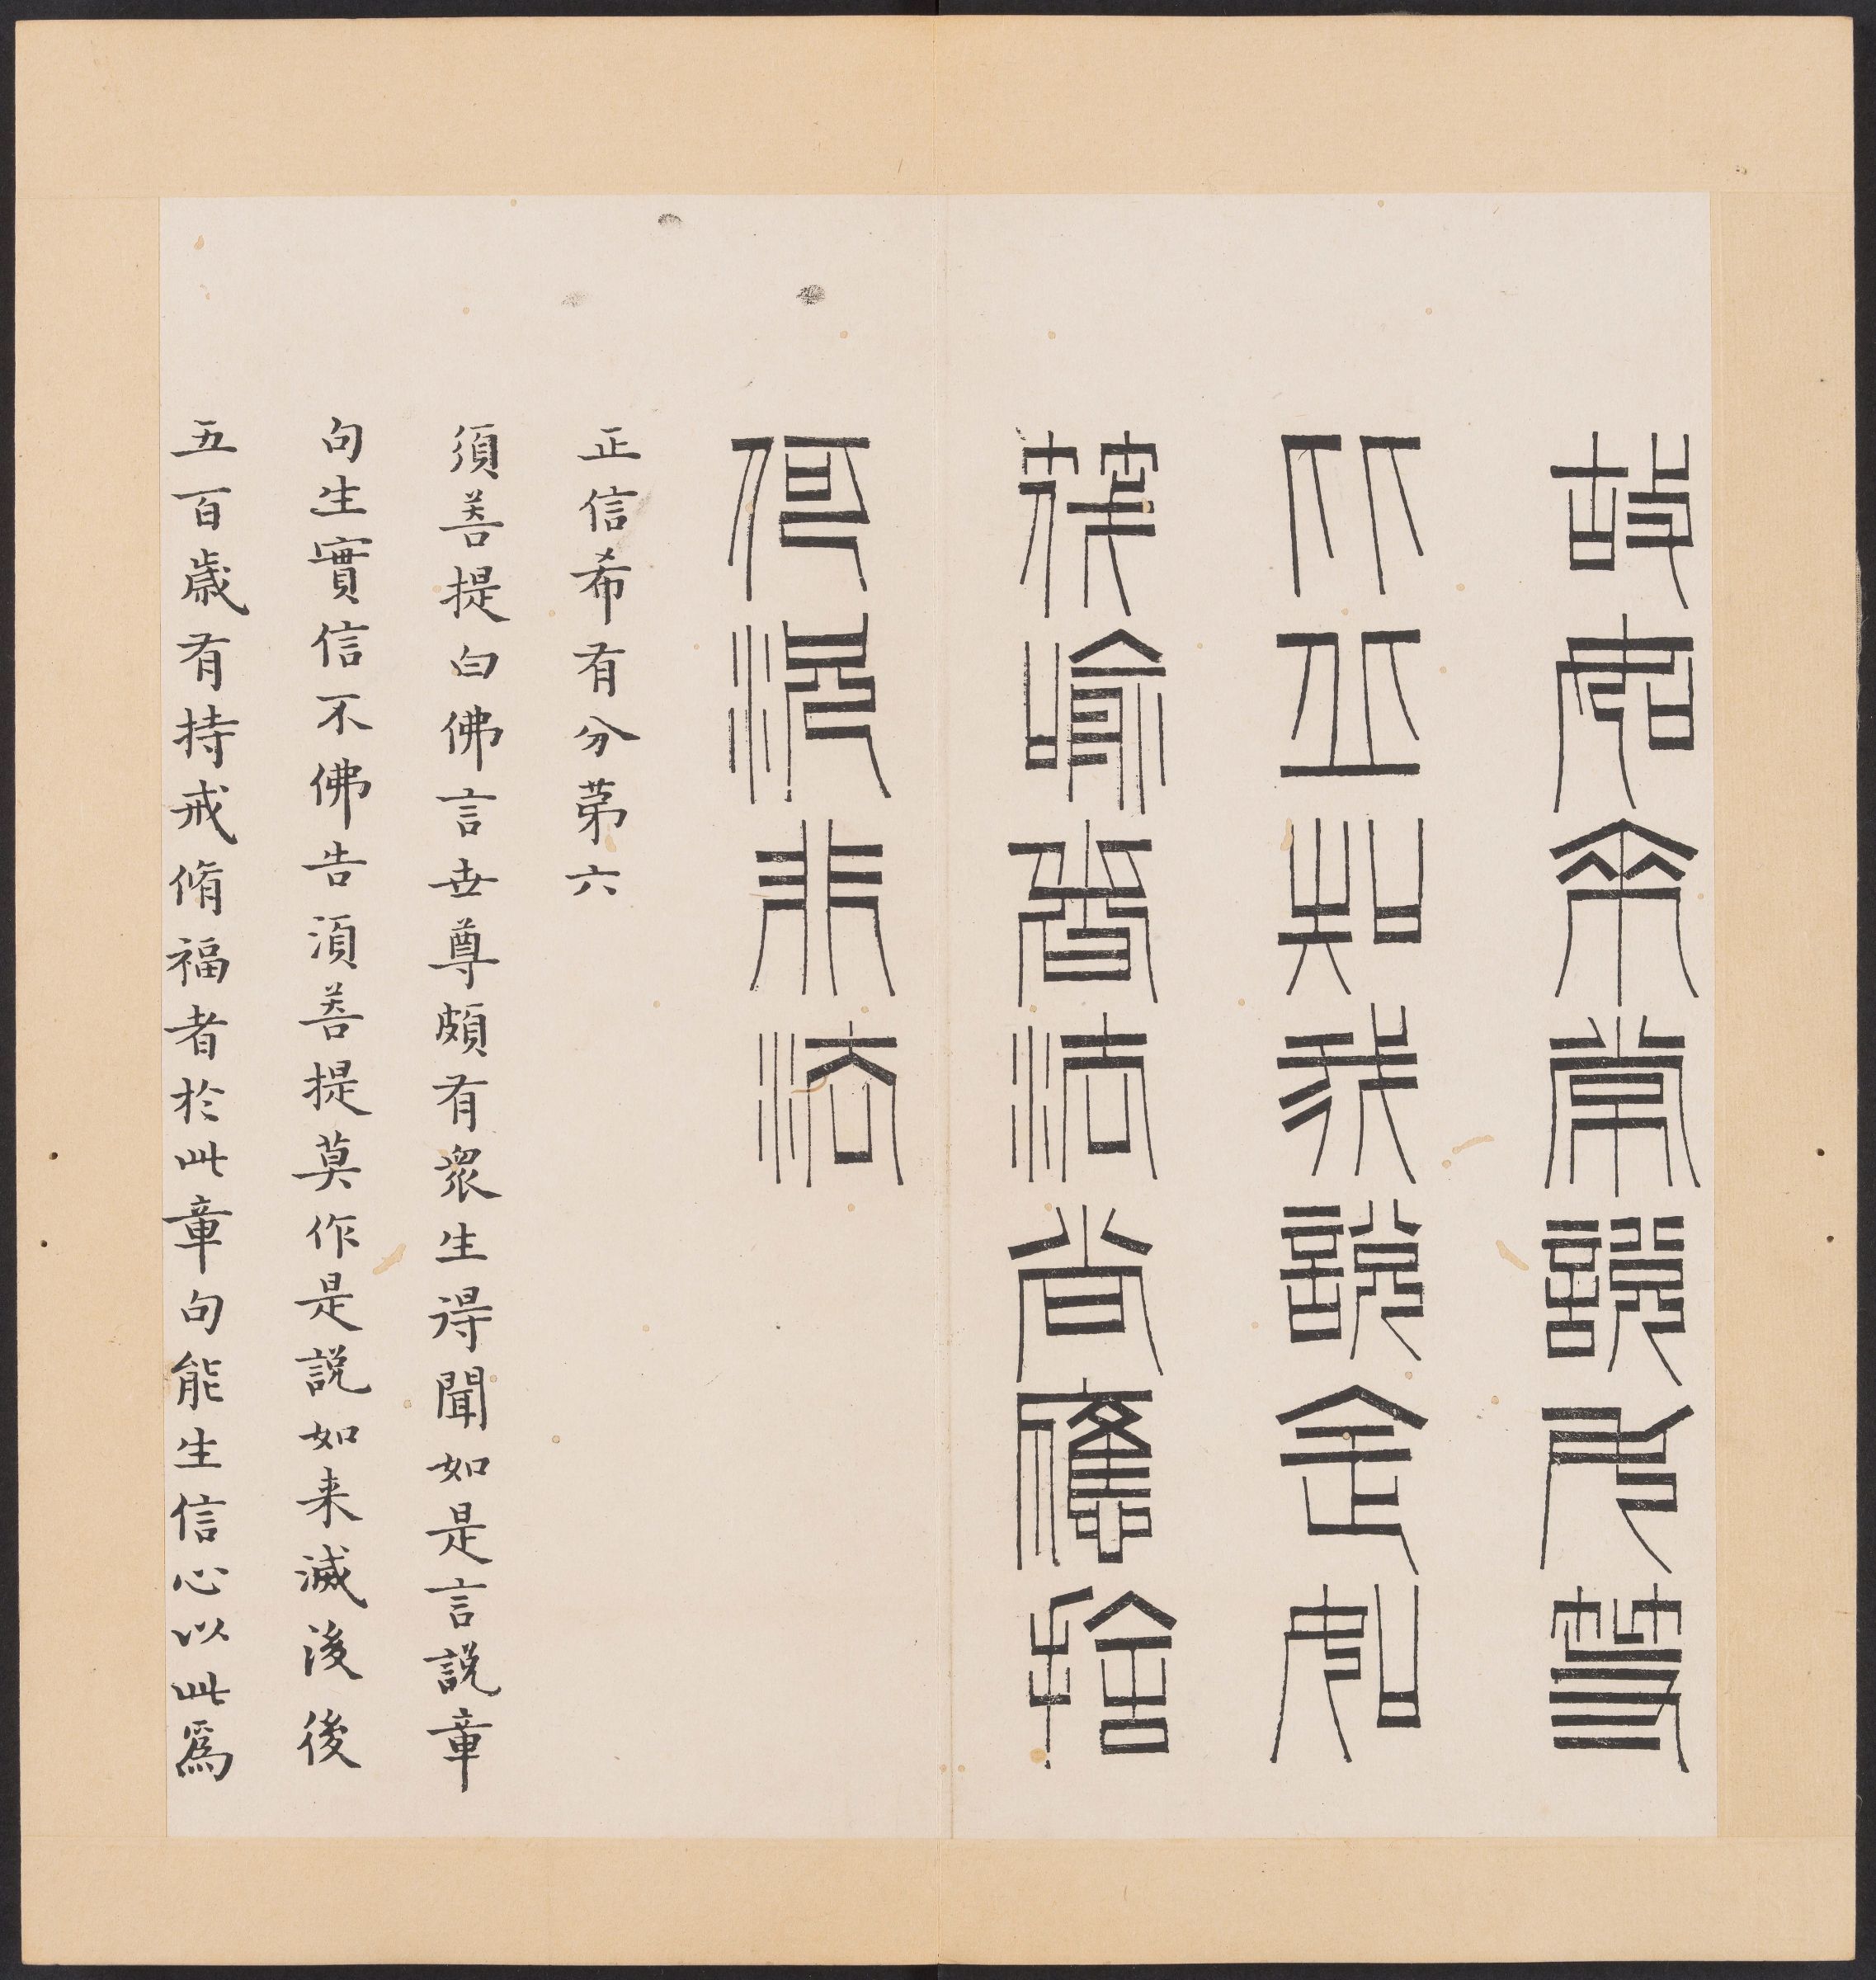 故如來常說汝等
比丘知我說法如
筏喻者法尚應捨
何況非法
正信希有分第六
須菩提白佛言世尊頗有衆生得聞如是言説章
句生實信不佛告須菩提莫作是説如来滅後後
五百歲有持戒脩福者於此章句能生信心以此爲